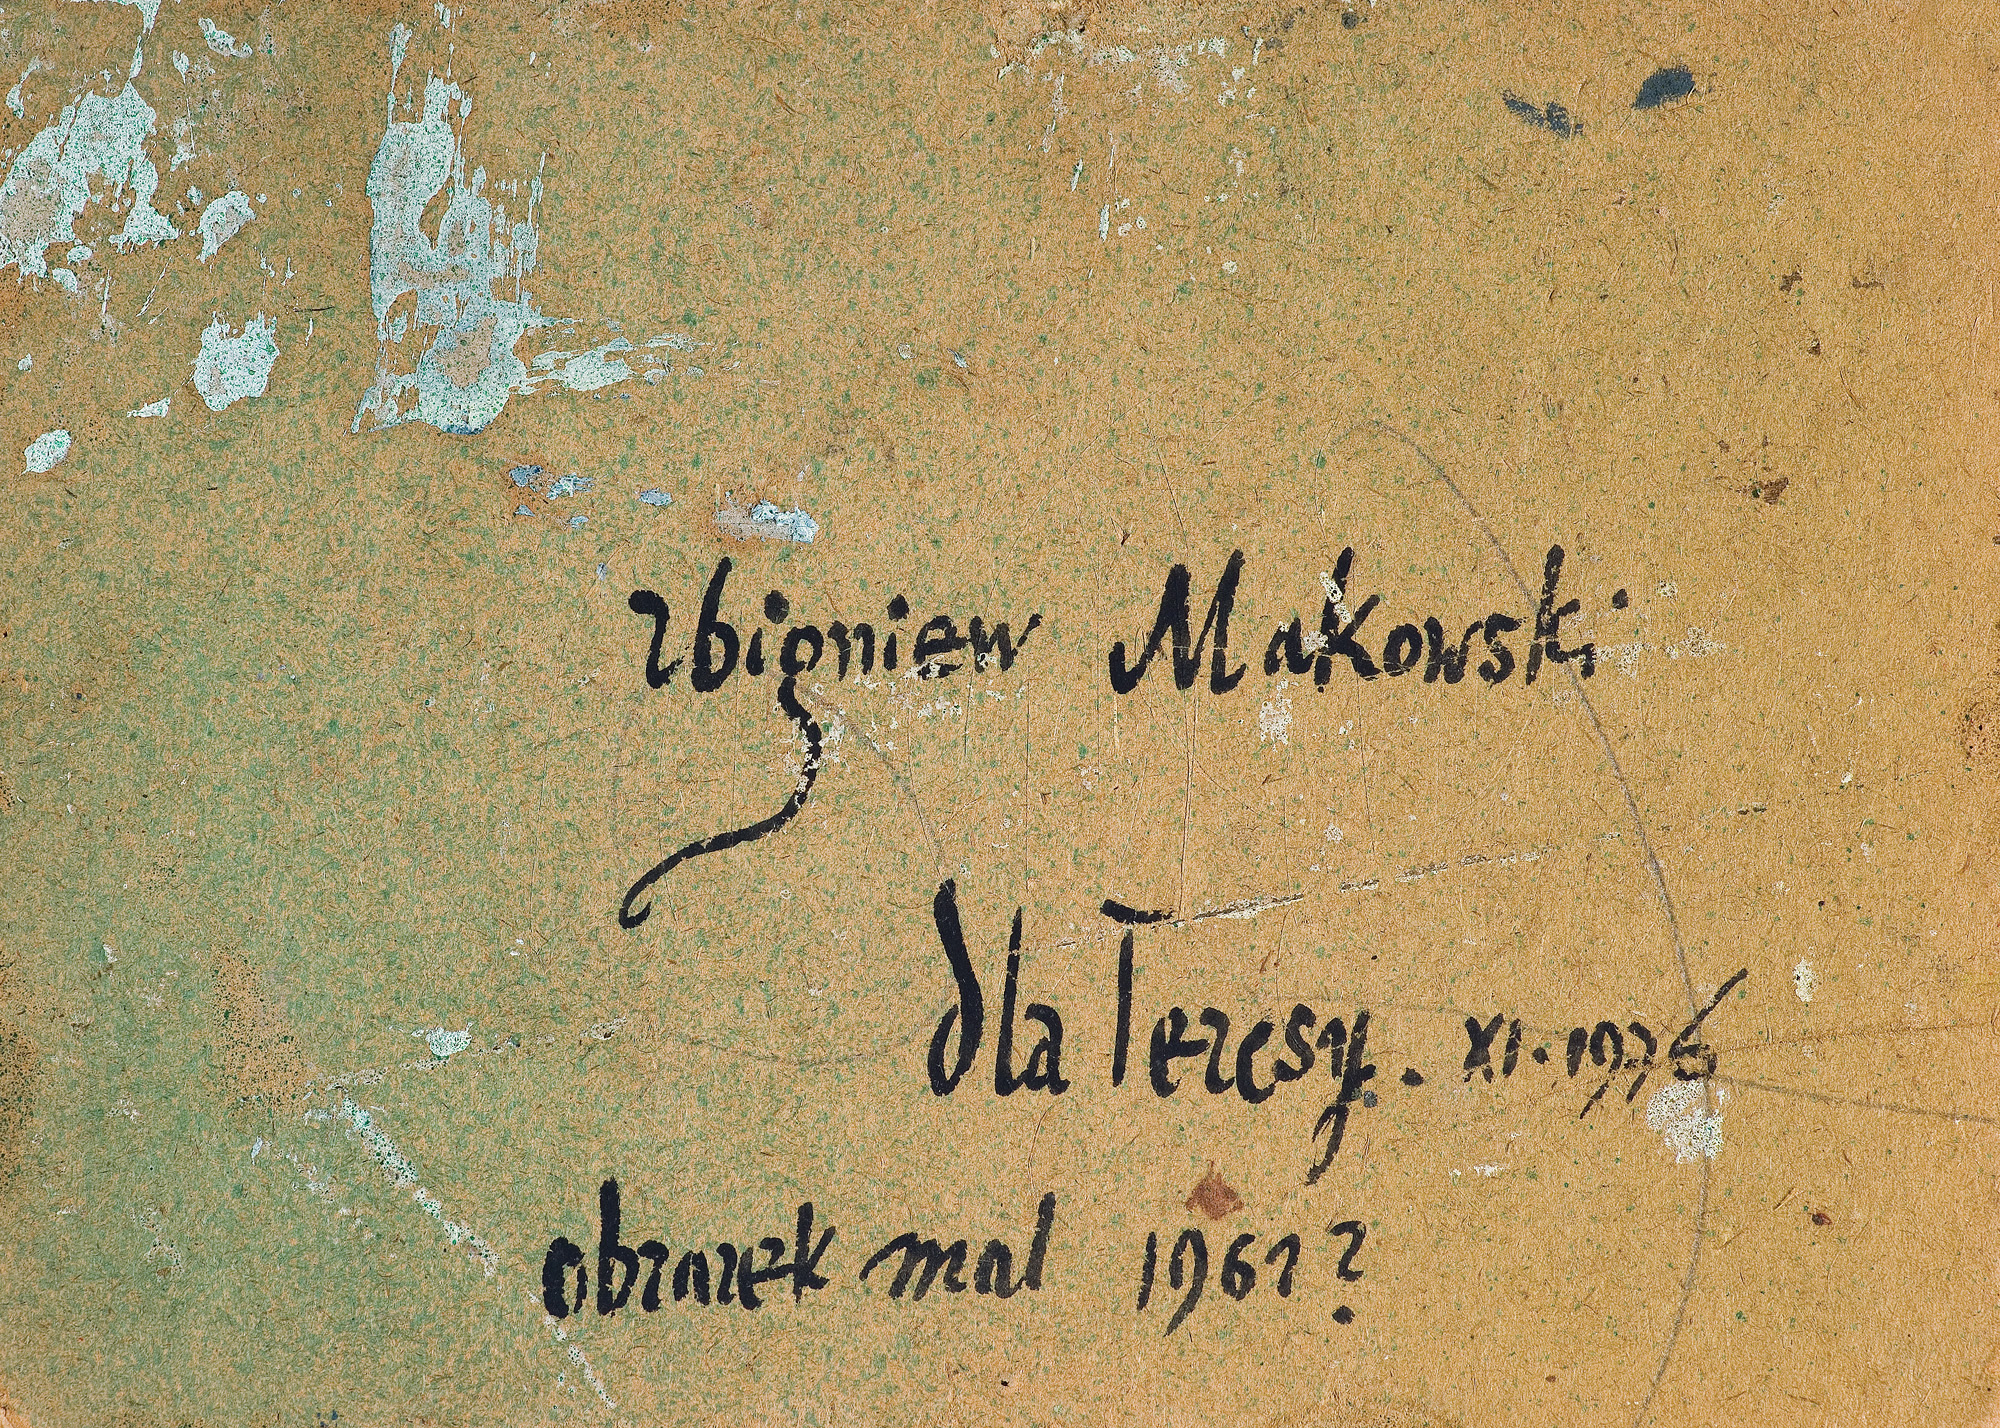 Zbigniew Makowski
dla Teresy. XI. 1976
obrazek mal 1961?